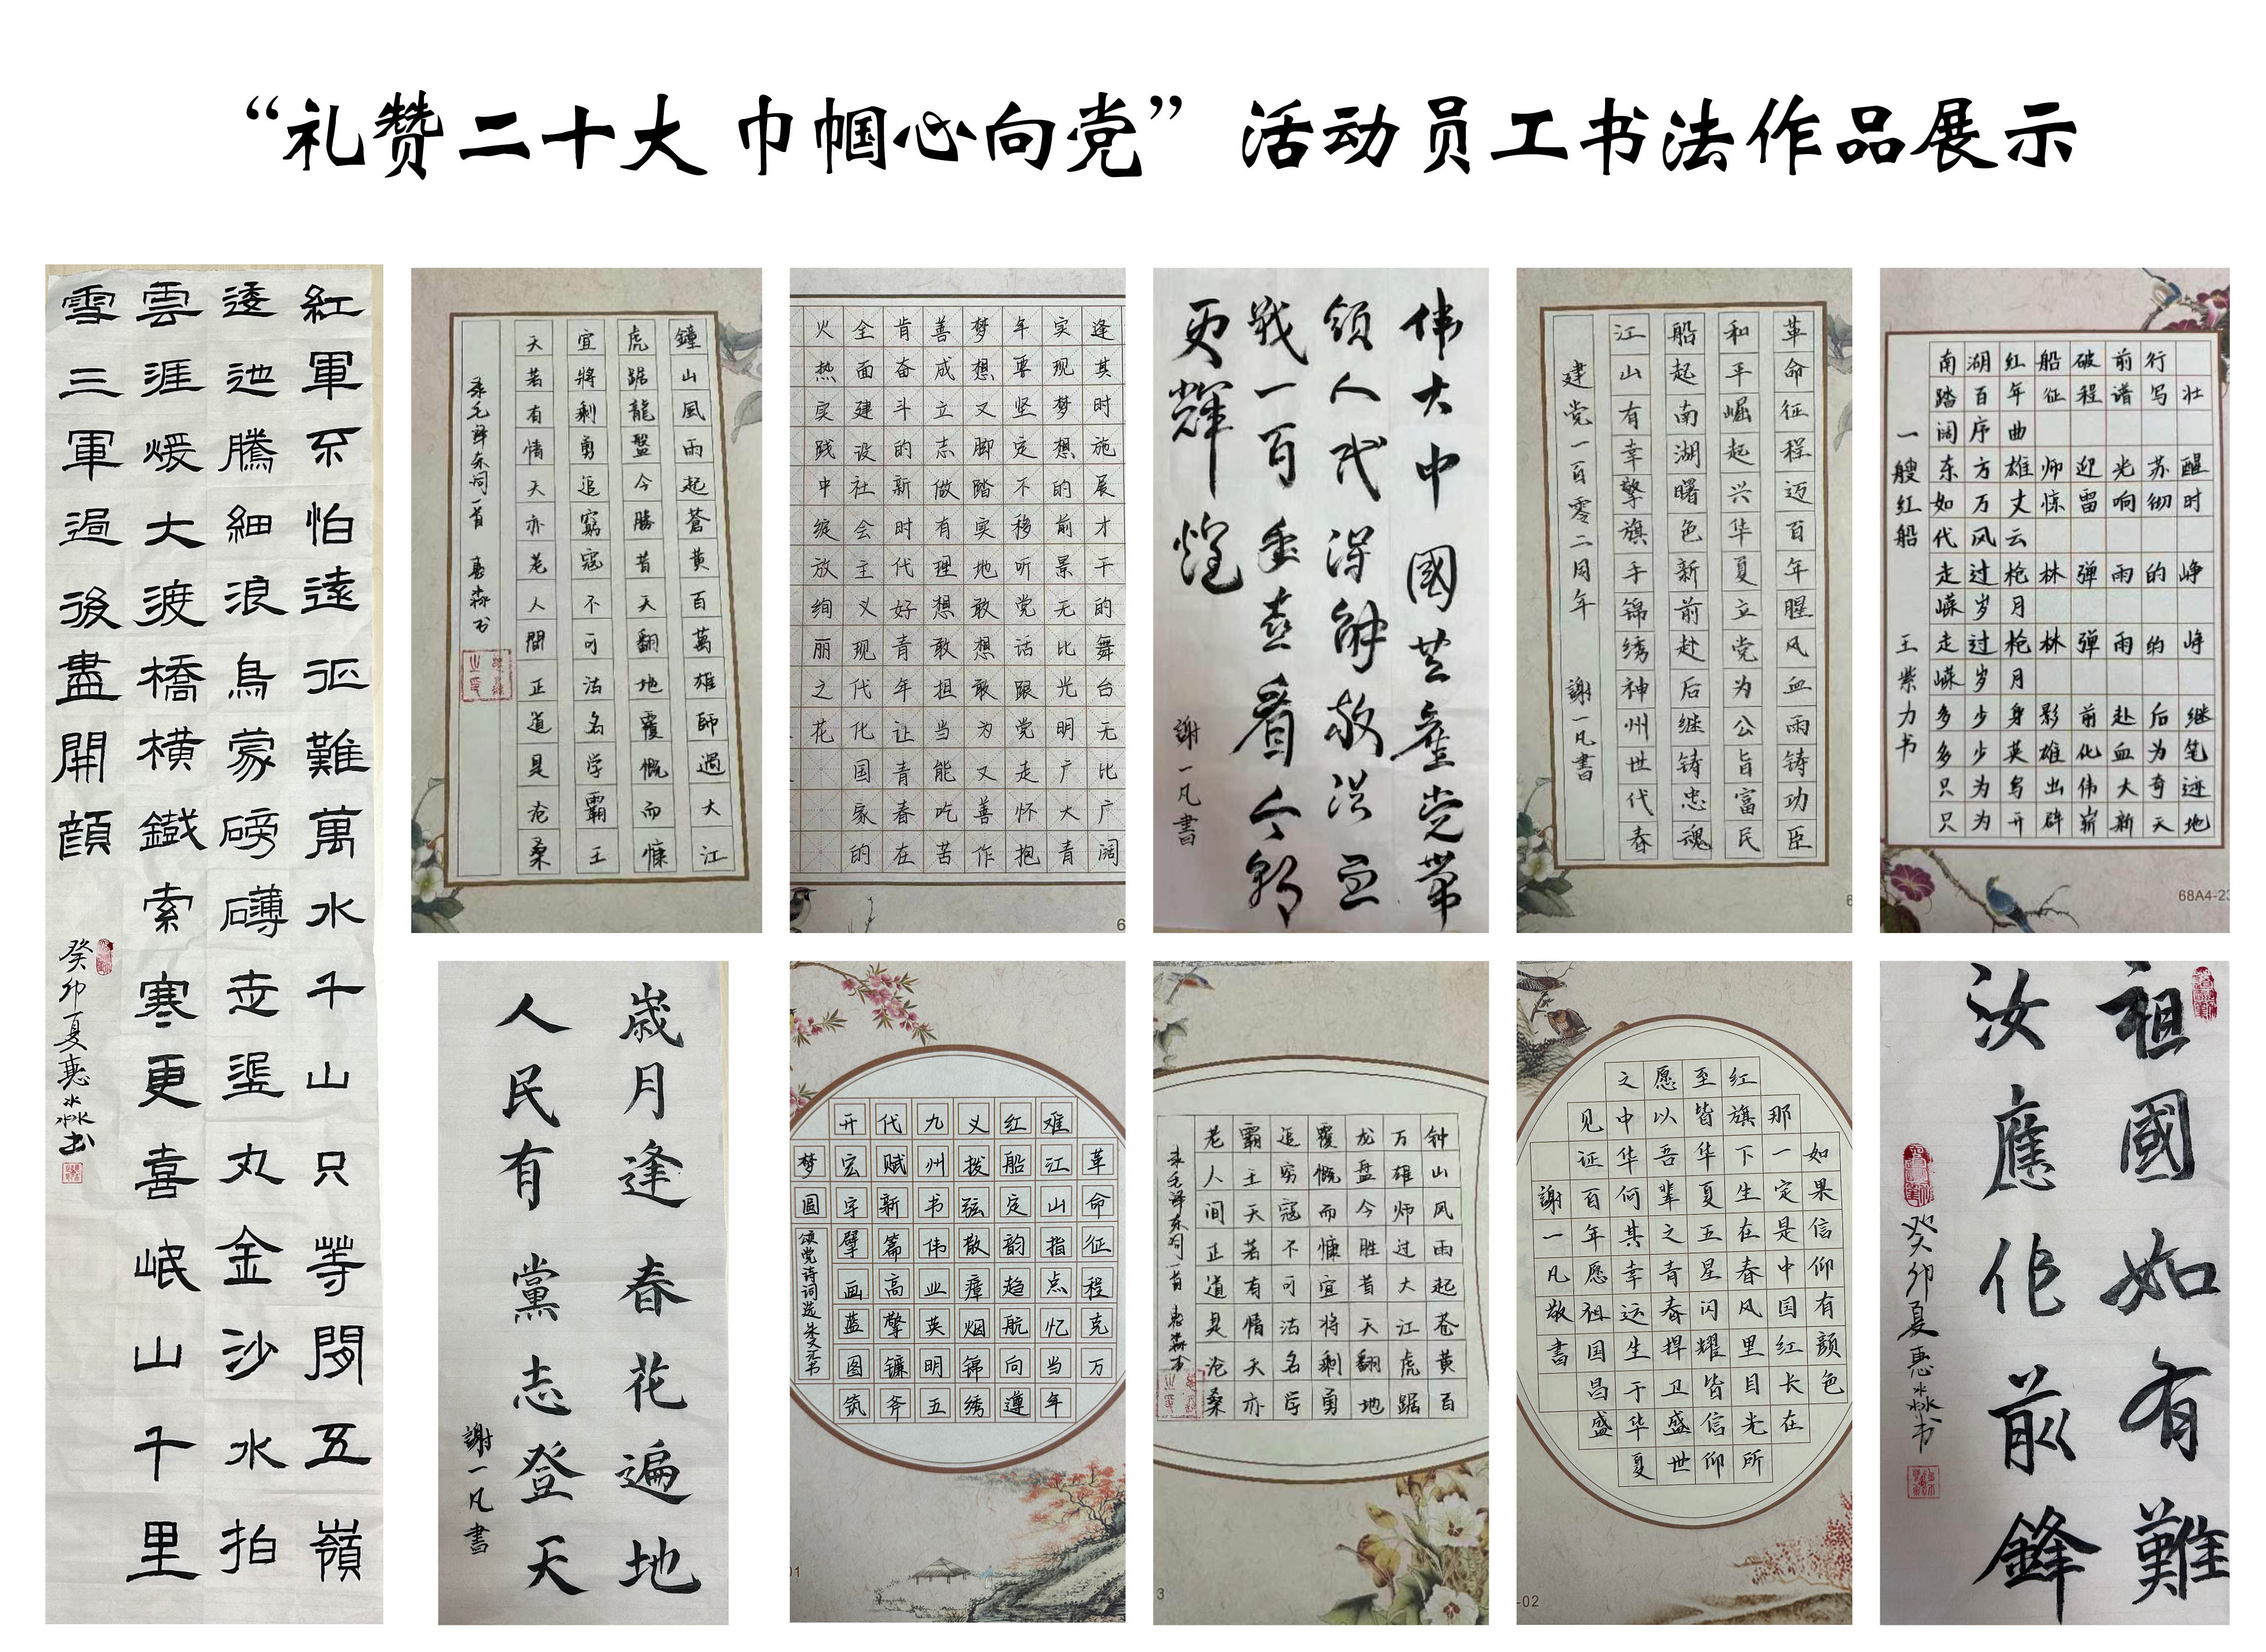 “礼赞二十大 巾帼心向党”活动员工书法作品展示
紅軍不怕遠征難萬水千山只等閒五嶺
逶迤騰細浪烏蒙磅礴走泥丸金沙水拍
雲涯煖大渡橋横鐵索寒更喜岷山千里
雪三軍過後盡開顔
癸卯夏惠淼书
鐘山風雨起蒼黄百萬雄師過大江
虎踞龍盤今勝昔天翻地覆慨而慷
宜將剩勇追窮寇不可沽名学霸王
天若有情天亦老人間正道是沧桑
录毛泽东词一首 惠淼书
逢其时施展才干的舞台无比广阔
实现梦想的前景无比光明广大青
年要坚定不移听党话跟党走怀抱
梦想又脚踏实地敢想敢为又善作
善成立志做有理想敢担当能吃苦
肯奋斗的新时代好青年让青春在
全面建设社会主义现代化国家的
火热实践中绽放绚丽之花
伟大中國共產党带
领人民得解放浴血
戰一百年喜看今朝
更輝煌
謝一凡書
革命征程迈百年腥风血雨铸功臣
和平崛起兴华夏立党为公旨富民
船起南湖曙色新前赴后继铸忠魂
江山有幸擎旗手锦绣神州世代春
建党一百零二周年 謝一凡書
南湖红船破前行
踏百年征程谱写壮
阔序曲
东方雄师迎光苏醒
如万丈惊雷响彻时
代风云
走过枪林弹雨的峥
嵘岁月
走过枪林弹雨的峥
嵘岁月
多少身影前赴后继
多少英雄化血为笔
只为写出伟大奇迹
只为开辟崭新天地
一艘红船 王紫力书
68A4-23
歲月逢春花遍地
人民有黨志登天
謝一凡書
革命征程克万
难江山指点忆当年
红船定韵趋航向遵
义拨弦散瘴烟锦绣
九州书伟业英明五
代赋新篇高擎镰斧
开宏宇擘画蓝图筑
梦圆
颂党诗词选 朱文元书
钟山风雨起苍黄百
万雄师过大江虎踞
龙盘今胜昔天翻地
覆慨而慷宜将剩勇
追穷寇不可沽名学
霸王天若有情天亦
老人间正道是沧桑
录毛泽东词一首 惠淼书
如果信仰有颜色
那一定是中国红长在
红旗下生在春风里目光所
至皆华夏五星闪耀皆信仰
愿以吾辈之青春捍卫盛世
之中华何其幸运生于华夏
见证百年愿祖国昌盛
謝一凡敬書
-02
祖國如有難
汝應作前鋒
癸卯夏惠淼书